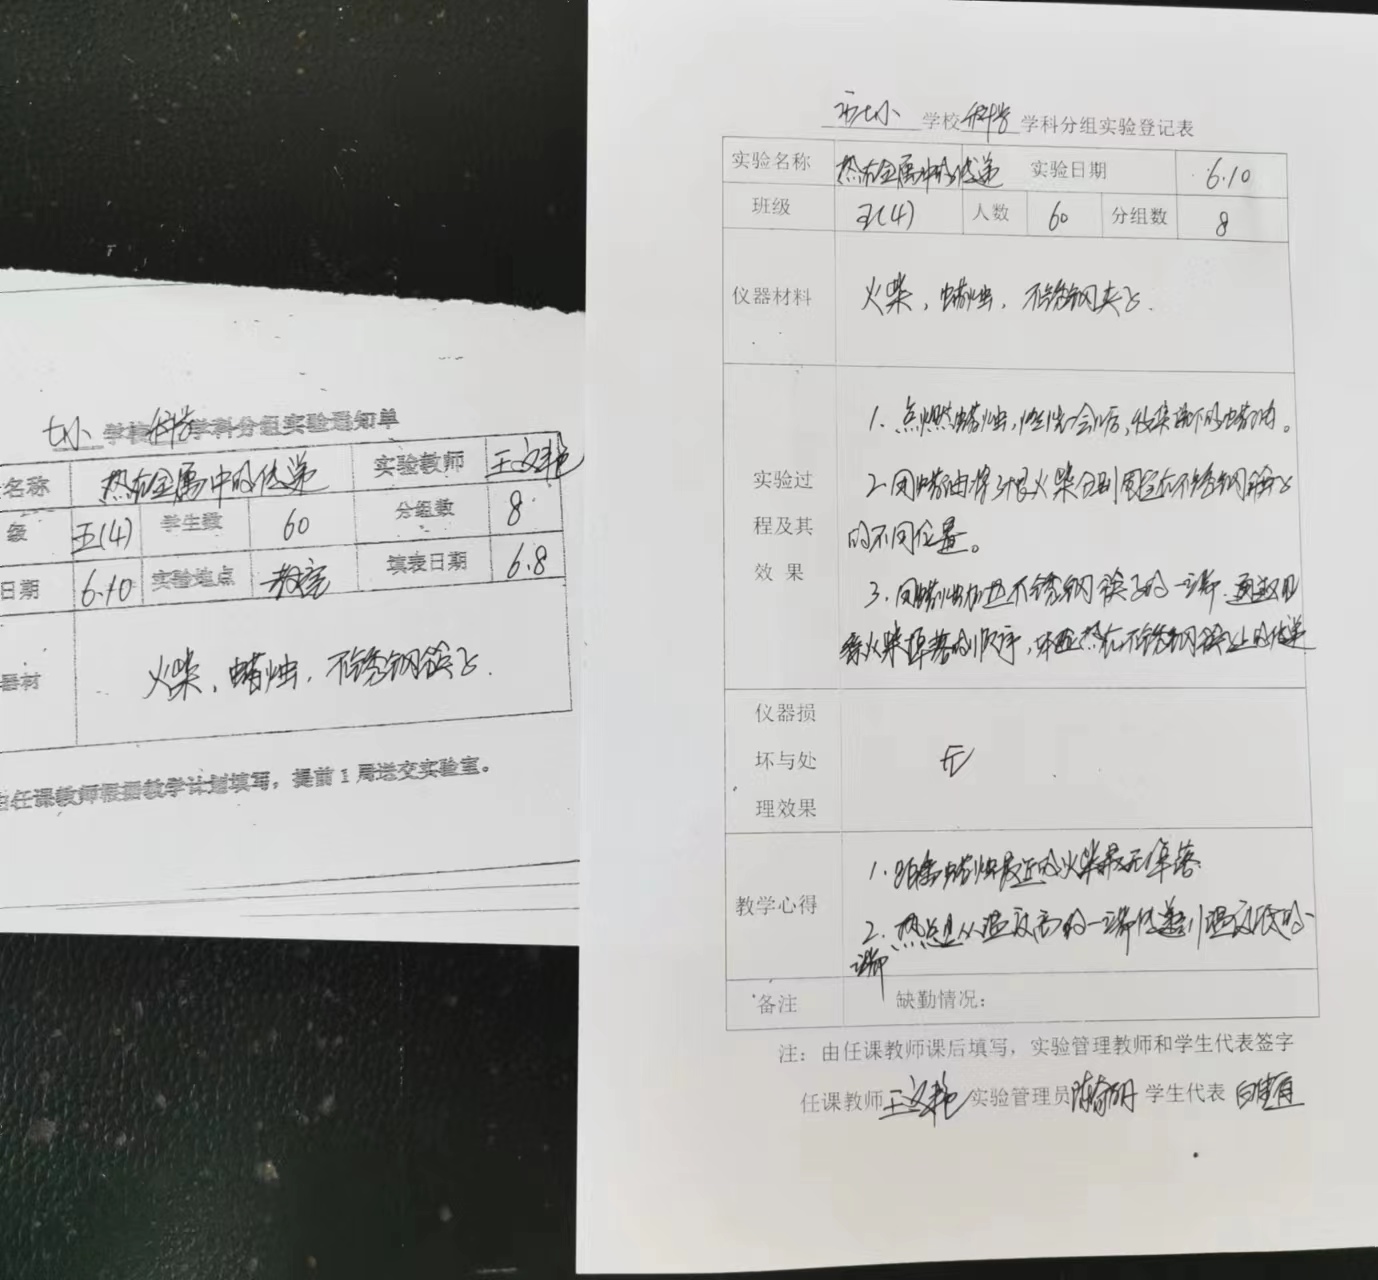 七小学校科学学科分组实验通知单
名称 热在金属中的传递 实验教师 王文艳
级 五(4) 学生数 60 分组数 8
日期 6.10 实验地点 教室 填表日期 6.8
器材 火柴、蜡烛、不锈钢筷子.
由任课教师根据教学计划填写，提前1周送交实验室。
市七小 学校科学学科分组实验登记表
实验名称 热在金属中的传递 实验日期 6.10
班级 五(4) 人数 60 分组数 8
仪器材料 火柴、蜡烛、不锈钢夹子.
实验过
程及其
效 果
1. 点燃蜡烛，燃烧一会后，收集流下的蜡油。
2. 用蜡油将3根火柴分别固定在不锈钢筷子
的不同位置。
3. 用蜡烛加热不锈钢筷子的一端.通过观
察火柴掉落的顺序，热在不锈钢筷子上的传递
仪器损
坏与处
理效果
无
教学心得
1. 距离蜡烛最近的火柴最先掉落.
2. 热总是从温度高的一端传递到温度低的一
端
备注 缺勤情况：
注：由任课教师课后填写，实验管理教师和学生代表签字
任课教师王文艳 实验管理员 学生代表